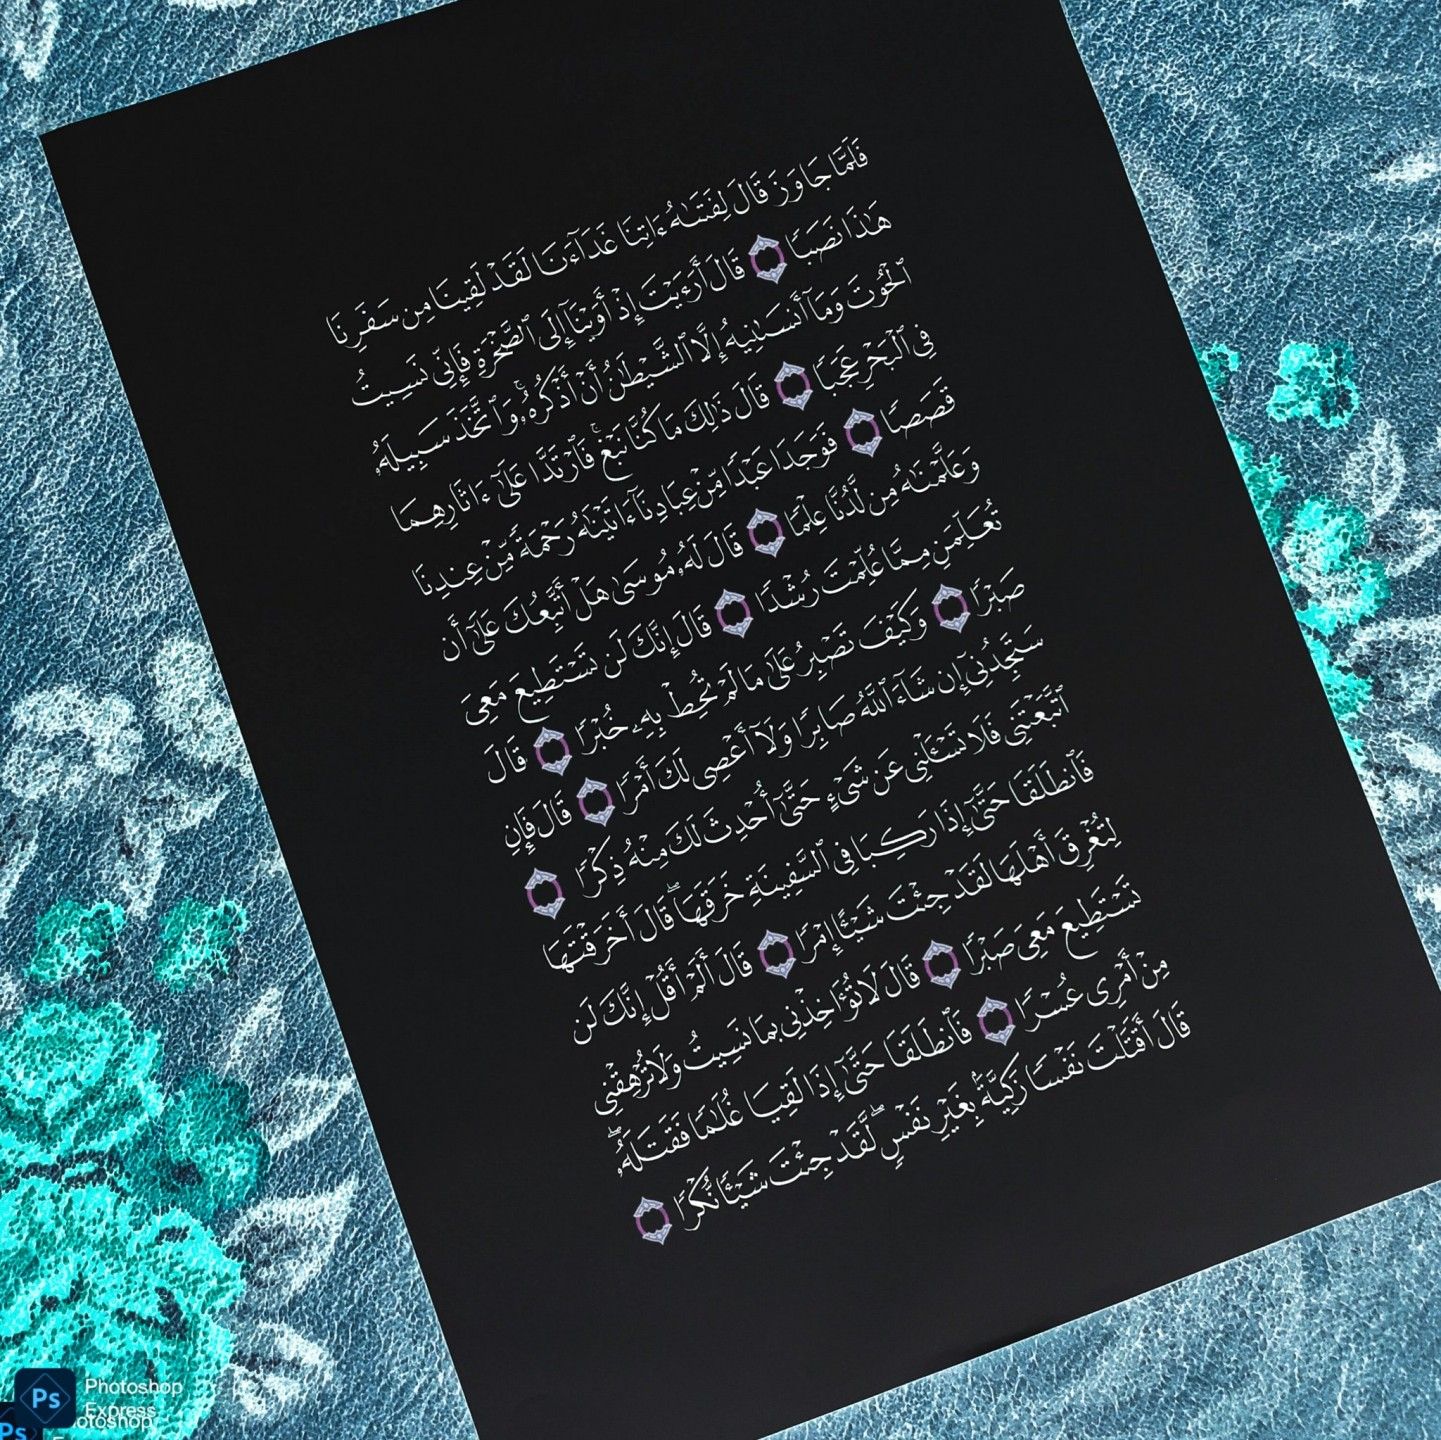 فَلَمَّا جَاوَزَ قَالَ لِفَتَىٰهُ ءَاتِنَا غَدَآءَنَا لَقَدْ لَقِينَا مِن سَفَرِنَا
هَٰذَا نَصَبًا قَالَ أَرَءَيْتَ إِذْ أَوَيْنَآ إِلَى ٱلصَّخْرَةِ فَإِنِّى نَسِيتُ
ٱلْحُوتَ وَمَآ أَنسَىٰنِيهُ إِلَّا ٱلشَّيْطَٰنُ أَنْ أَذْكُرَهُۥ ۚ وَٱتَّخَذَ سَبِيلَهُۥ
فِى ٱلْبَحْرِ عَجَبًا قَالَ ذَٰلِكَ مَا كُنَّا نَبْغِ ۚ فَٱرْتَدَّا عَلَىٰٓ ءَاثَارِهِمَا
قَصَصًا فَوَجَدَا عَبْدًا مِّنْ عِبَادِنَآ ءَاتَيْنَٰهُ رَحْمَةً مِّنْ عِندِنَا
وَعَلَّمْنَٰهُ مِن لَّدُنَّا عِلْمًا قَالَ لَهُۥ مُوسَىٰ هَلْ أَتَّبِعُكَ عَلَىٰٓ أَن
تُعَلِّمَنِ مِمَّا عُلِّمْتَ رُشْدًا قَالَ إِنَّكَ لَن تَسْتَطِيعَ مَعِىَ
صَبْرًا وَكَيْفَ تَصْبِرُ عَلَىٰ مَا لَمْ تُحِطْ بِهِۦ خُبْرًا قَالَ
سَتَجِدُنِىٓ إِن شَآءَ ٱللَّهُ صَابِرًا وَلَآ أَعْصِى لَكَ أَمْرًا قَالَ فَإِنِ
ٱتَّبَعْتَنِى فَلَا تَسْـَٔلْنِى عَن شَىْءٍ حَتَّىٰٓ أُحْدِثَ لَكَ مِنْهُ ذِكْرًا
فَٱنطَلَقَا حَتَّىٰٓ إِذَا رَكِبَا فِى ٱلسَّفِينَةِ خَرَقَهَا ۖ قَالَ أَخَرَقْتَهَا
لِتُغْرِقَ أَهْلَهَا لَقَدْ جِئْتَ شَيْـًٔا إِمْرًا قَالَ أَلَمْ أَقُلْ إِنَّكَ لَن
تَسْتَطِيعَ مَعِىَ صَبْرًا قَالَ لَا تُؤَاخِذْنِى بِمَا نَسِيتُ وَلَا تُرْهِقْنِى
مِنْ أَمْرِى عُسْرًا فَٱنطَلَقَا حَتَّىٰٓ إِذَا لَقِيَا غُلَٰمًا فَقَتَلَهُۥ ۖ
قَالَ أَقَتَلْتَ نَفْسًا زَكِيَّةًۢ بِغَيْرِ نَفْسٍ ۖ لَّقَدْ جِئْتَ شَيْـًٔا نُّكْرًا
Ps Photoshop
Express
Ps Photoshop